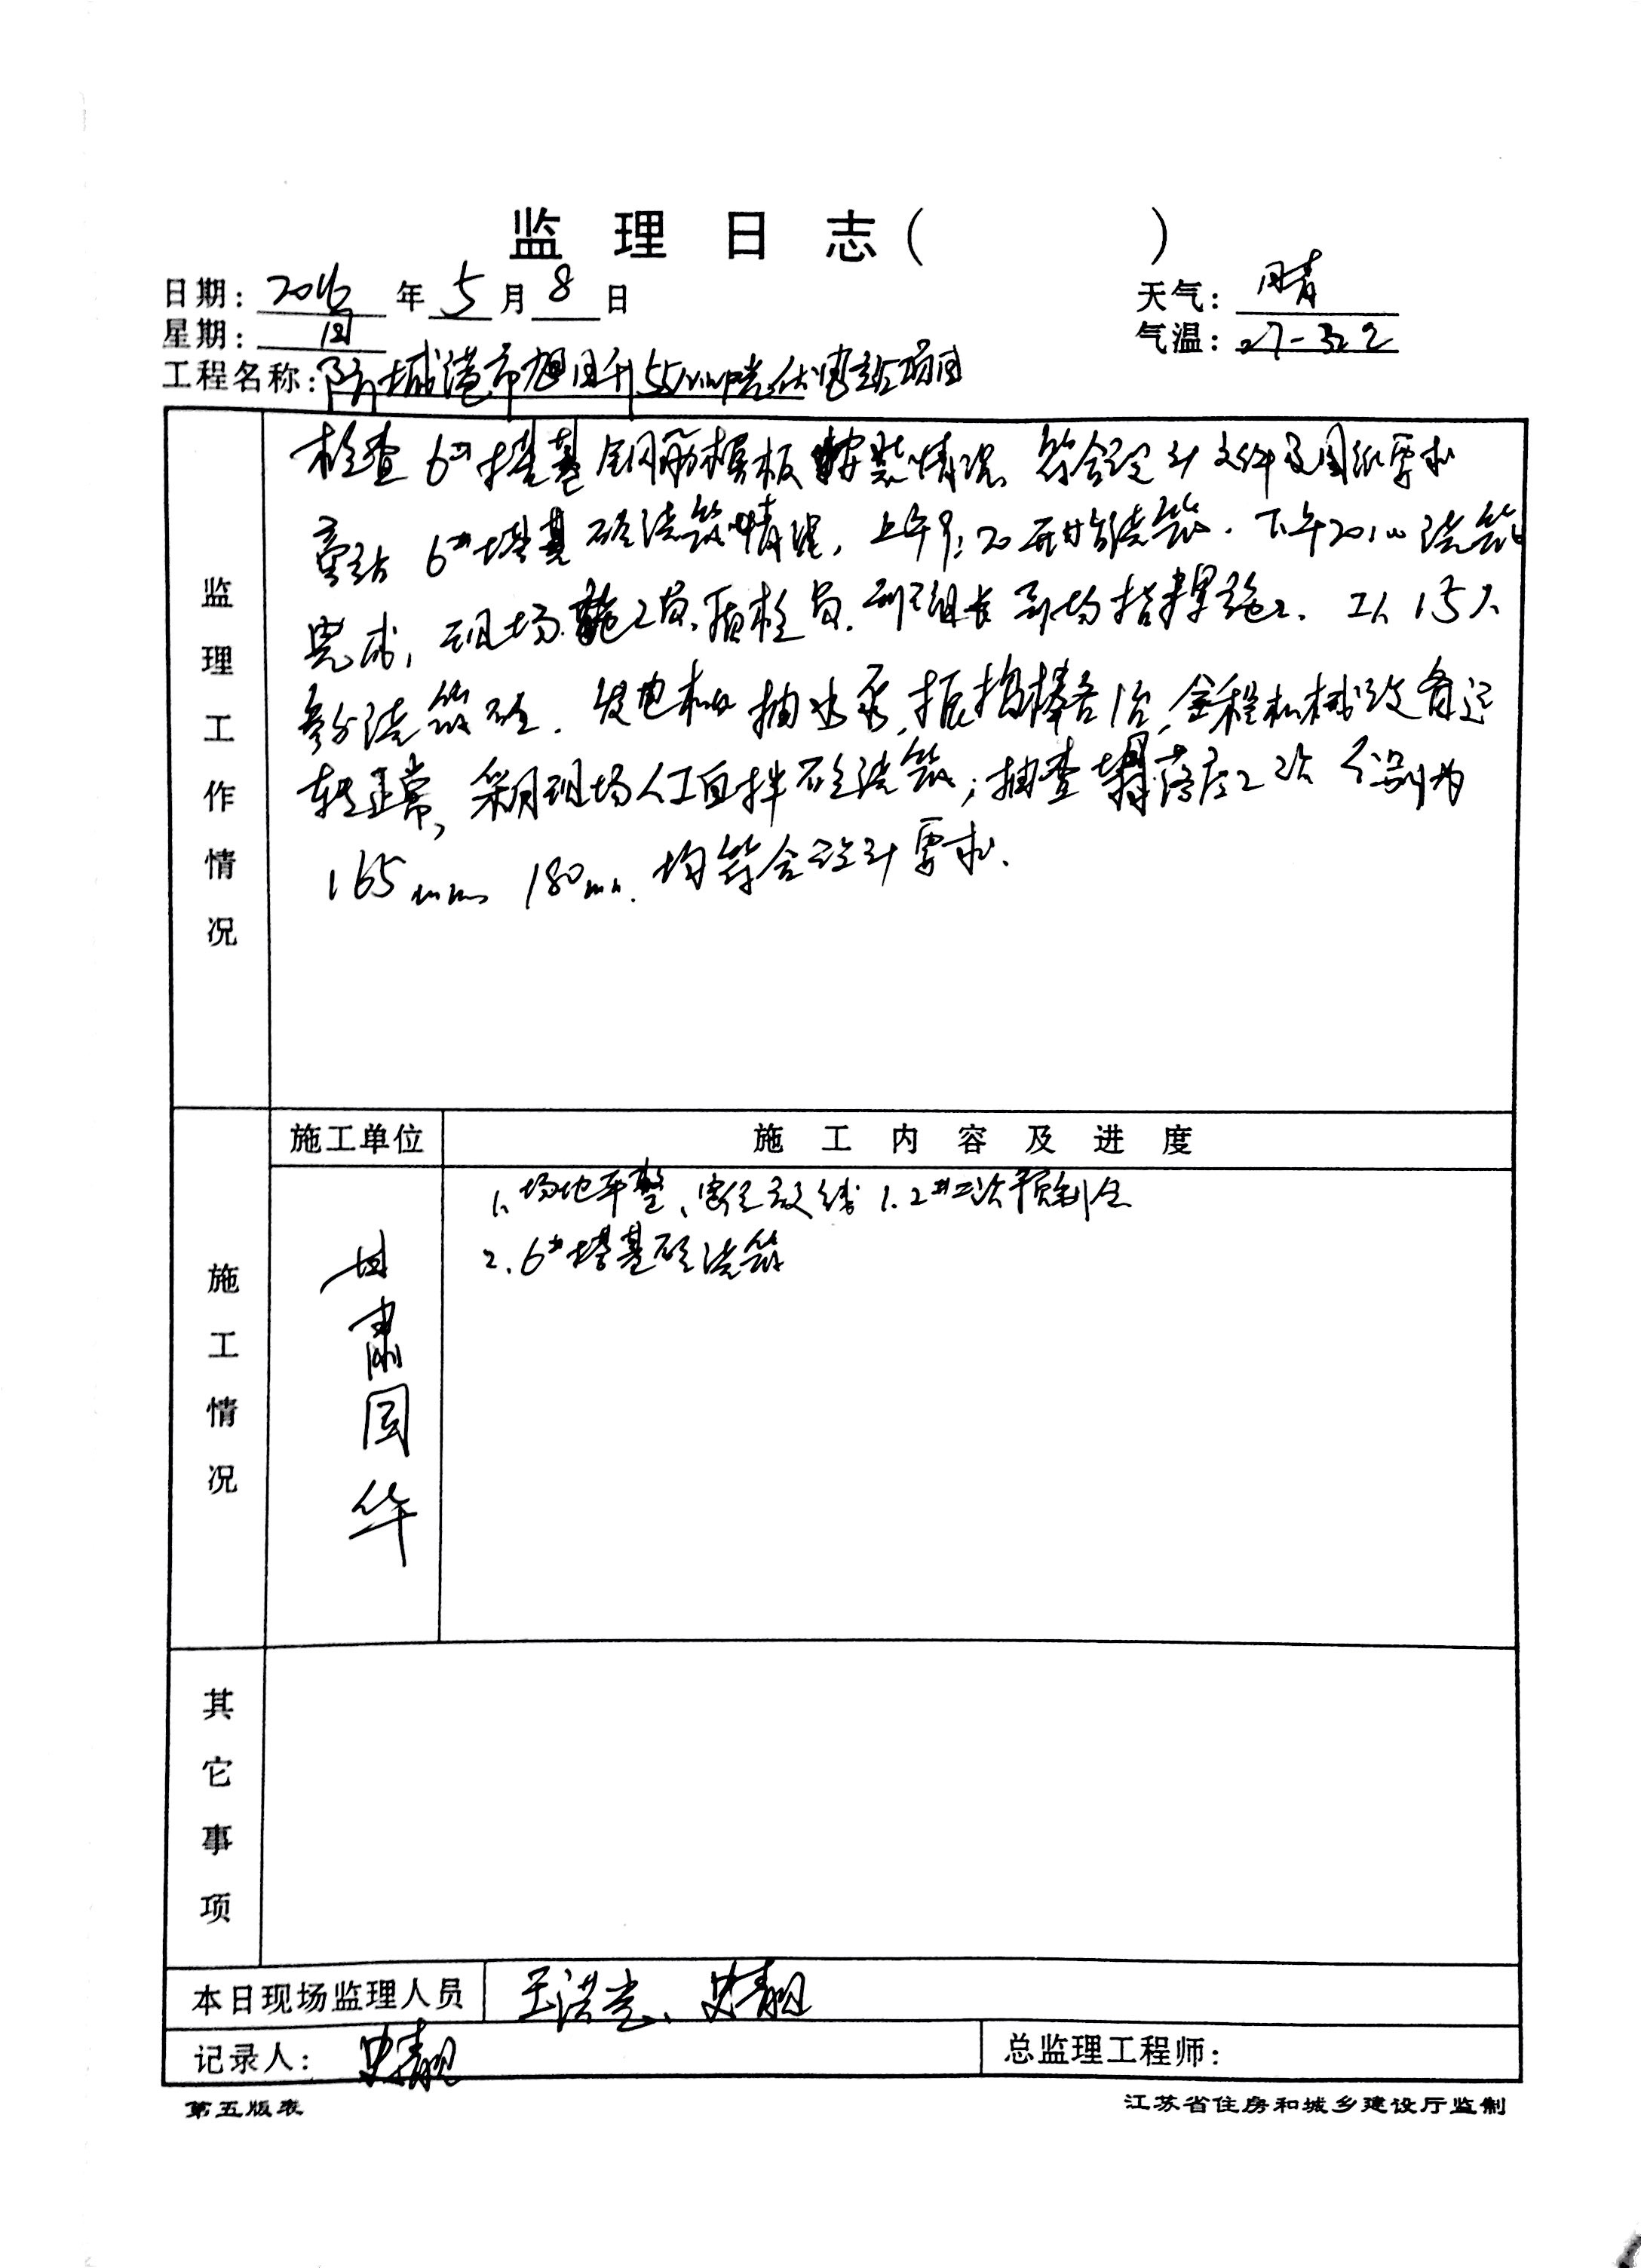 监理日志( )
日期: 2016 年 5 月 8 日 天气: 晴
星期: 日 气温: 27-32℃
工程名称: 防城港市旭日升55MWP光伏 项目
监理工作情况
检查6#塔基钢筋模板安装情况、符合设计文件及图纸要求
旁站6#塔基砼浇筑情况, 上午9:20开始浇筑. 下午20:00浇筑
完成, 现场施工员、质检员、班组长到场指挥施工. 工人15人
参与浇筑砼. 发电机、抽水泵、振捣棒各1台, 全程机械设备运
转正常, 采用现场人工自拌砼浇筑; 抽查塌落度2次 分别为
165mm、180mm. 均符合设计要求.
施工情况
施工单位 施工内容及进度
甘肃国华
1、场地平整、定位放线 1.2#二次预制仓
2、6#塔基砼浇筑
其它事项
本日现场监理人员 王洪光、史靓
记录人: 史靓 总监理工程师:
第五版表 江苏省住房和城乡建设厅监制